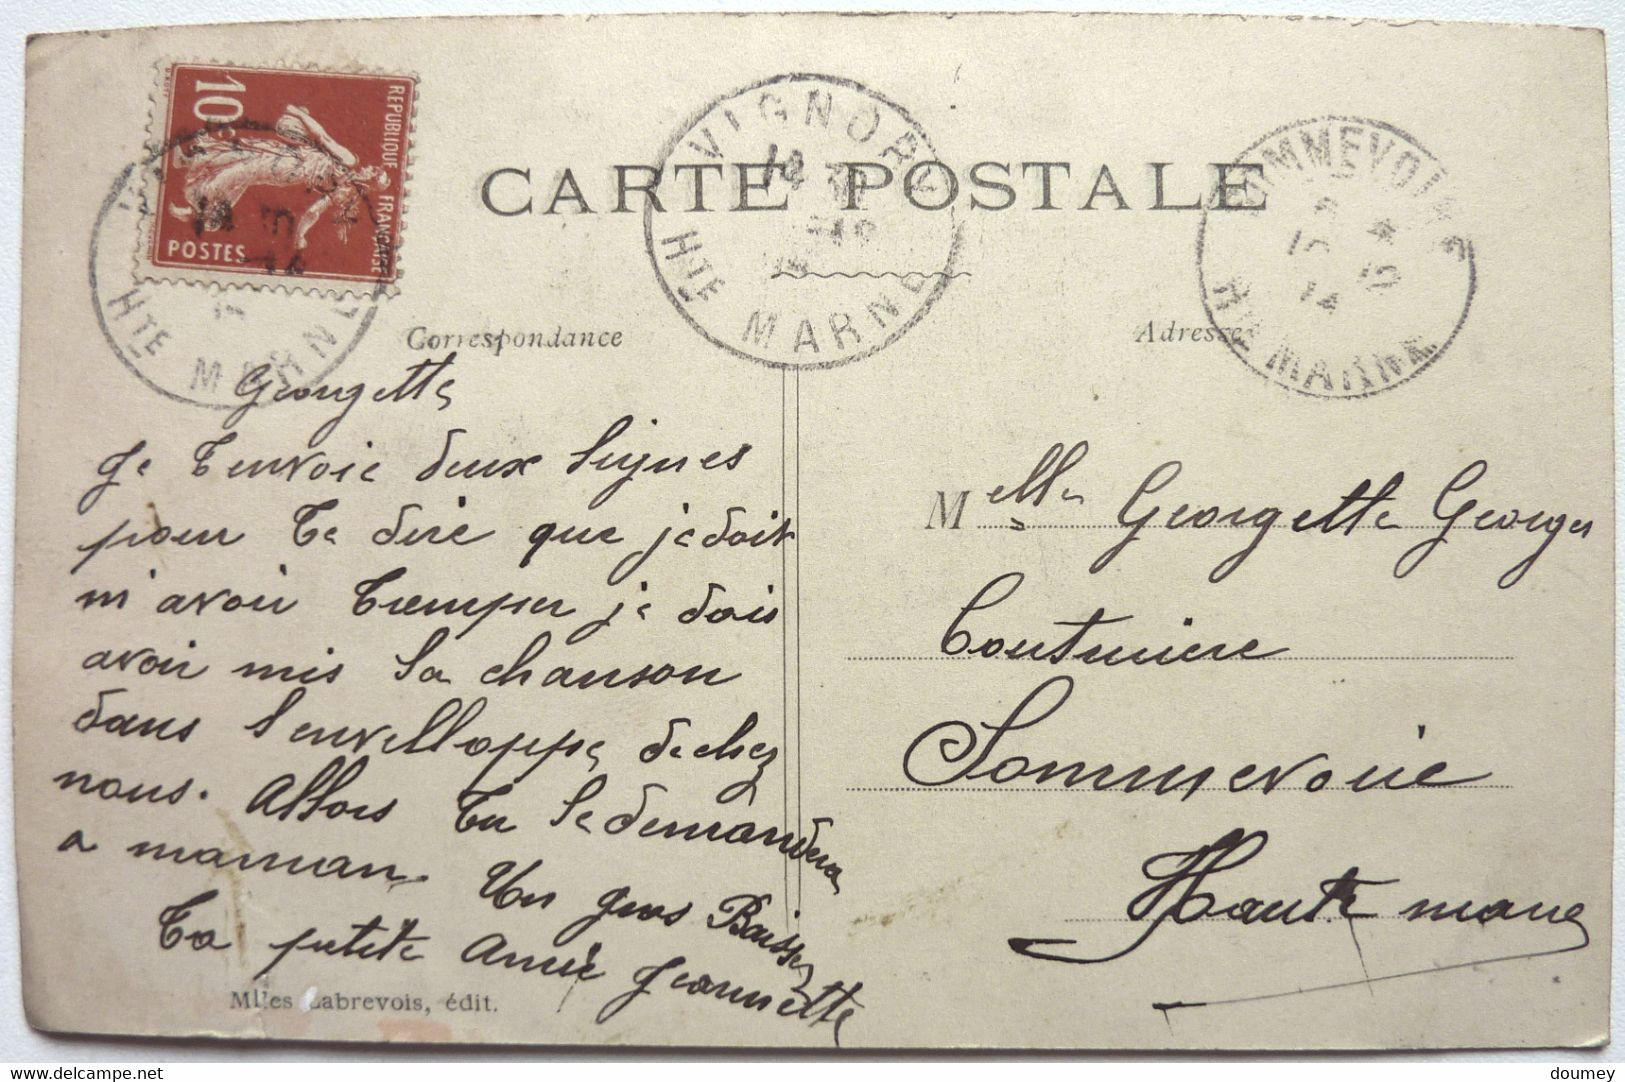 10c
REPUBLIQUE FRANÇAISE
POSTES
VIGNORY
HTE MARNE
CARTE POSTALE
SOMMEVOIRE
HTE MARNE
Correspondance
Adresse
Georgette
Je t'envoie deux lignes
pour te dire que je doit
m'avoir tromper je dois
avoir mis la chanson
dans l'envelloppe de chez
nous. Allors tu le demandera
a maman. Un gros Baiser
Ta petite Amie Jeannette
Melle Georgette Georges
Couturière
Sommevoire
Haute marne
Mlles Labrevois, édit.
delcampe.net
doumey